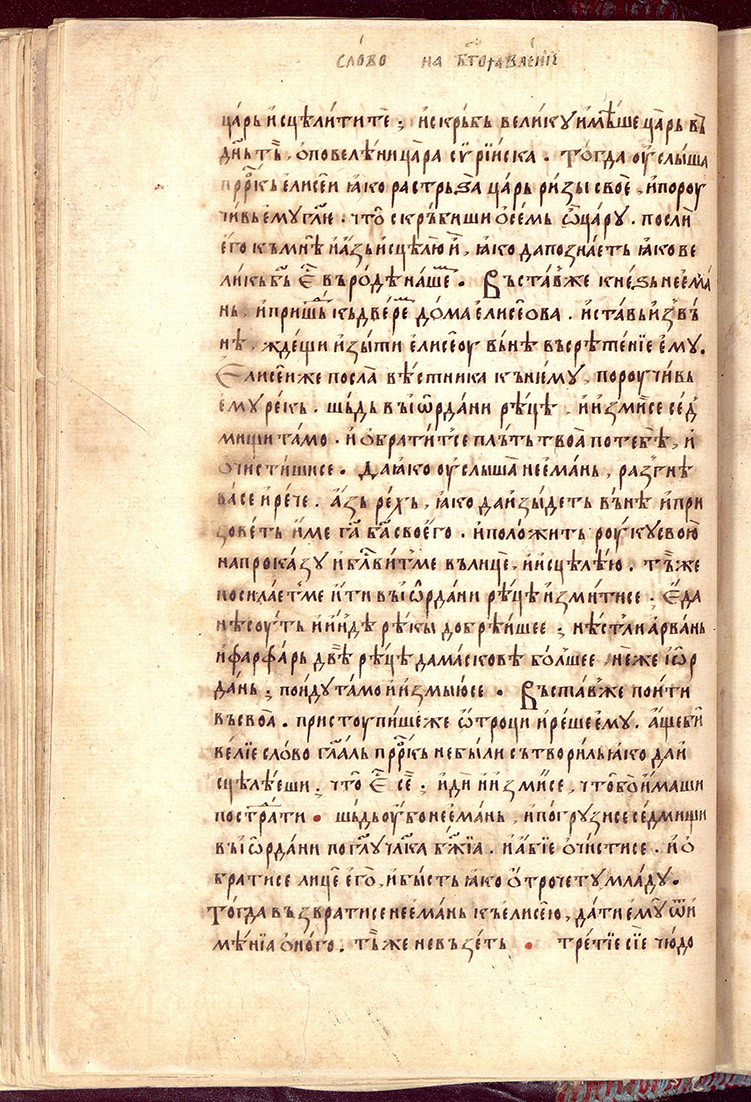 сло́во на бг҃оꙗвле́нїе
ца́рь и҆сцѣли́ти те̏ ; и҆ скръ́бь вели́ку и҆мѣ́ше ца́рь въ
дн҃ь ть̏ , ѻ повеле́ни ца́ра сѵ́рїиска . То́гда ѹ҆слы́ша
прⷪ҇ркь є҆лисе́и ꙗ҆ко растръ́за ца́рь ри́зы своѐ , и҆ пороу
чи́вь є҆му гл҃ю . что̀ скръ́биши ѻ҆ се́мь ѿ ца́ру . посли̏
є҆го̀ къ мнѣ̀ и҆ а҆́зь и҆сцѣлю̀ и҆̏ , ꙗ҆ко да позна́еть ꙗ҆ко ве
ли́къ бг҃ь є҆ⷭ҇ въ ро́дѣ на́шеⷨ . Въста́в же кнѐзь нее҆ма́
нь . и҆ пришⷣь къ две́реⷨ до́ма є҆лисе́ова . и҆ ста́вь и҆звъ́
нѣ . жде́щи и҆зы́ти є҆лисе́оу вънѐ въ срѣ́тенїе є҆му̀ .
Єлисе́и же посла̀ вѣ́стника къ нѥ́му , пороучи́вь
є҆му ре́къ . шь́дь въ і҆ѡрда́ни рѣ́цѣ , и҆ и҆зми́и се се́д
мищи та́мо . и҆ ѻ҆брати́т се плъ́ть твоа̀ по тебѣ̀ , и҆
ѻ҆чи́стиши се . Да ꙗ҆ко ѹ҆слы́ша нее҆ма́нь , разгнѣ́
ва се и҆ ре́че . а҆́зь рѣ́хъ , ꙗ҆ко да и҆зы́деть въ́нѣ и҆ при
зове́ть и҆́ме гⷭ҇а бг҃а свое҆го . и҆ поло́жить роу́ку свою̀
на прока́зу и҆ блⷭ҇ви́т ме въ лице̏ , и҆ и҆сцѣлѣ́ю . тъ̏ же
посила́ет ме и҆́ти въ і҆ѡрда́ни рѣ́цѣ и҆зми́ти се . Єда
не соу́ть и҆ и҆́ндѣ рѣ́кы добрѣ́ишее ; нѣ́ст ли а҆рва́нь
и҆ фарфа́рь двѣ̀ рѣ́цѣ дама́сковѣ бо́лшее не́же і҆ѡр
да́нь ; пои́ду та́мо и҆ и҆змы́ю се . Въста́в же пои́ти
въ своа̀ . приступи́ше же ѿтроци и҆ ре́ше є҆му . а҆́ще бѝ
ве́лїе сло́во гл҃а́ль прⷪ҇ркь не би́ли сътвори́ль ꙗ҆ко да и҆
сцѣлѣ́еши ; что̀ є҆ⷭ҇ сѐ ; и҆ди̏ и҆ и҆зми́и се , что̀ бо и҆́маши
постра́ти . шь́дь ѹ҆́бо нее҆ма́нь , и҆ погру́зи се се́дмищи
въ і҆ѡрда́ни по гл҃у чл҃ка бж҃їа . и҆ а҆́бїе ѻ҆чи́сти се . и҆ ѻ҆
брати се лице̏ є҆го̀ , и҆ бы́сть ꙗ҆ко ѻ҆́трочету мла́ду .
То́гда възврати́ се нее҆ма́нь къ є҆лисе́ю , да́ти є҆му̀ ѿ и҆
мѣ́нїа ѻ҆́ного . тъ̏ же не въ́зеть . тре́тїе сїе чю́до